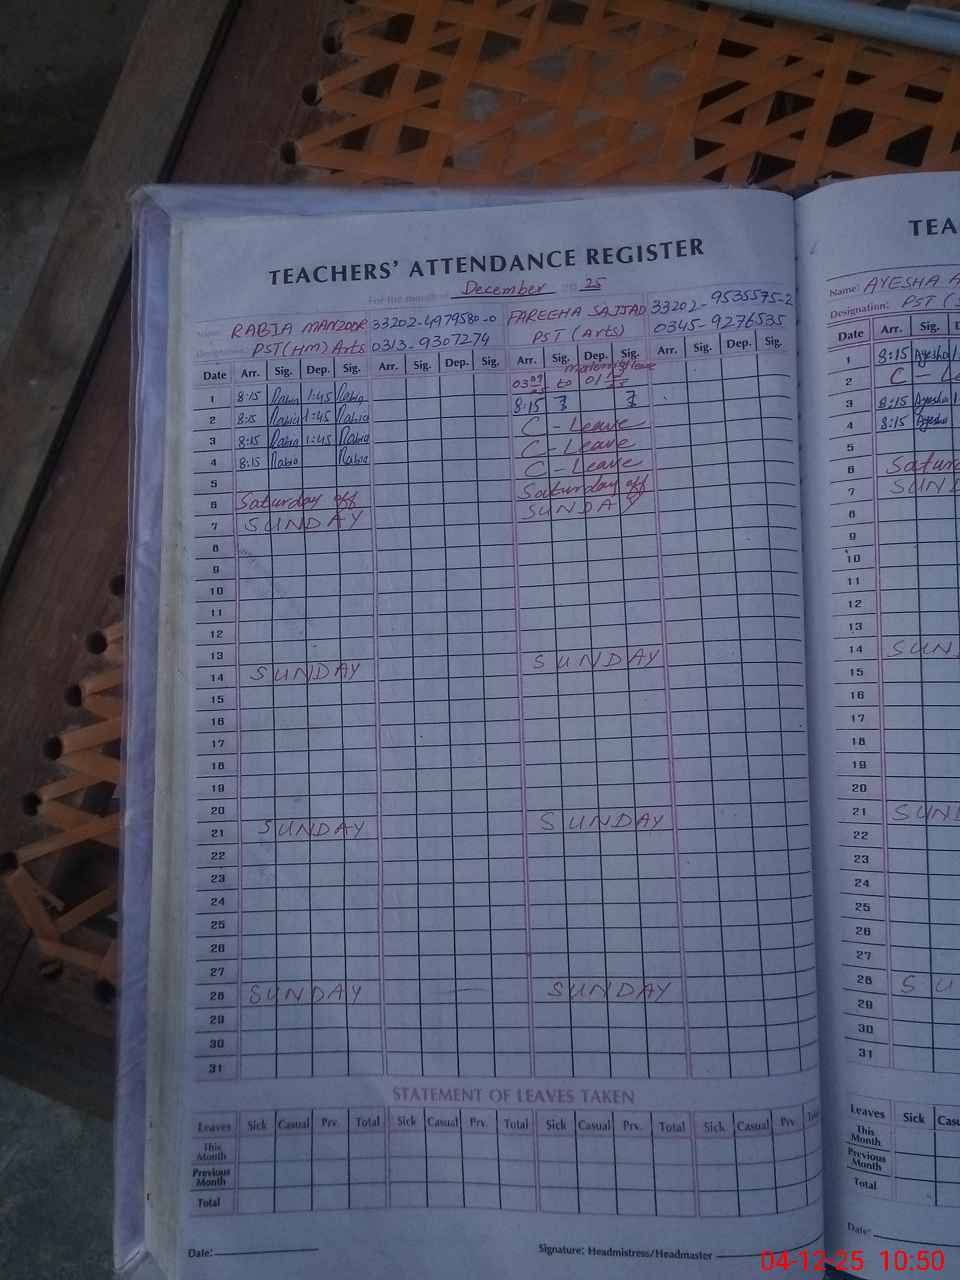 TEACHERS' ATTENDANCE REGISTER
For the month of December 25
Name: RABIA MANZOOR 33202-4979580-0 FAREEHA SAJJAD 33202-9535575-2
Designation: PST(HM) Arts 0313-9307274 PST (Arts) 0345-9276535
Date Arr. Sig. Dep. Sig. Arr. Sig. Dep. Sig. Arr. Sig. Dep. Sig. Arr. Sig. Dep. Sig.
maternity leave
to
1 8:15 Rabia 1:45 Rabia 8:15
2 8:15 Rabia 1:45 Rabia C - Leave
3 8:15 Rabia 1:45 Rabia C - Leave
4 8:15 Rabia Rabia C - Leave
5
6 Saturday off Saturday off
7 SUNDAY SUNDAY
8
9
10
11
12
13
14 SUNDAY SUNDAY
15
16
17
18
19
20
21 SUNDAY SUNDAY
22
23
24
25
26
27
28 SUNDAY SUNDAY
29
30
31
STATEMENT OF LEAVES TAKEN
Leaves Sick Casual Prv. Total Sick Casual Prv. Total Sick Casual Prv. Total Sick Casual Prv. Total
This Month
Previous Month
Total
Date: Signature: Headmistress/Headmaster
TEA
Name: AYESHA A
Designation: PST (
Date Arr. Sig. D
1 8:15 Ayesha 1
2 C - Le
3 8:15 Ayesha 1
4 8:15 Ayesha
5
6 Saturd
7 SUND
8
9
10
11
12
13
14 SUN
15
16
17
18
19
20
21 SUND
22
23
24
25
26
27
28 SU
29
30
31
Leaves Sick Casu
This Month
Previous Month
Total
Date:
04-12-25 10:50